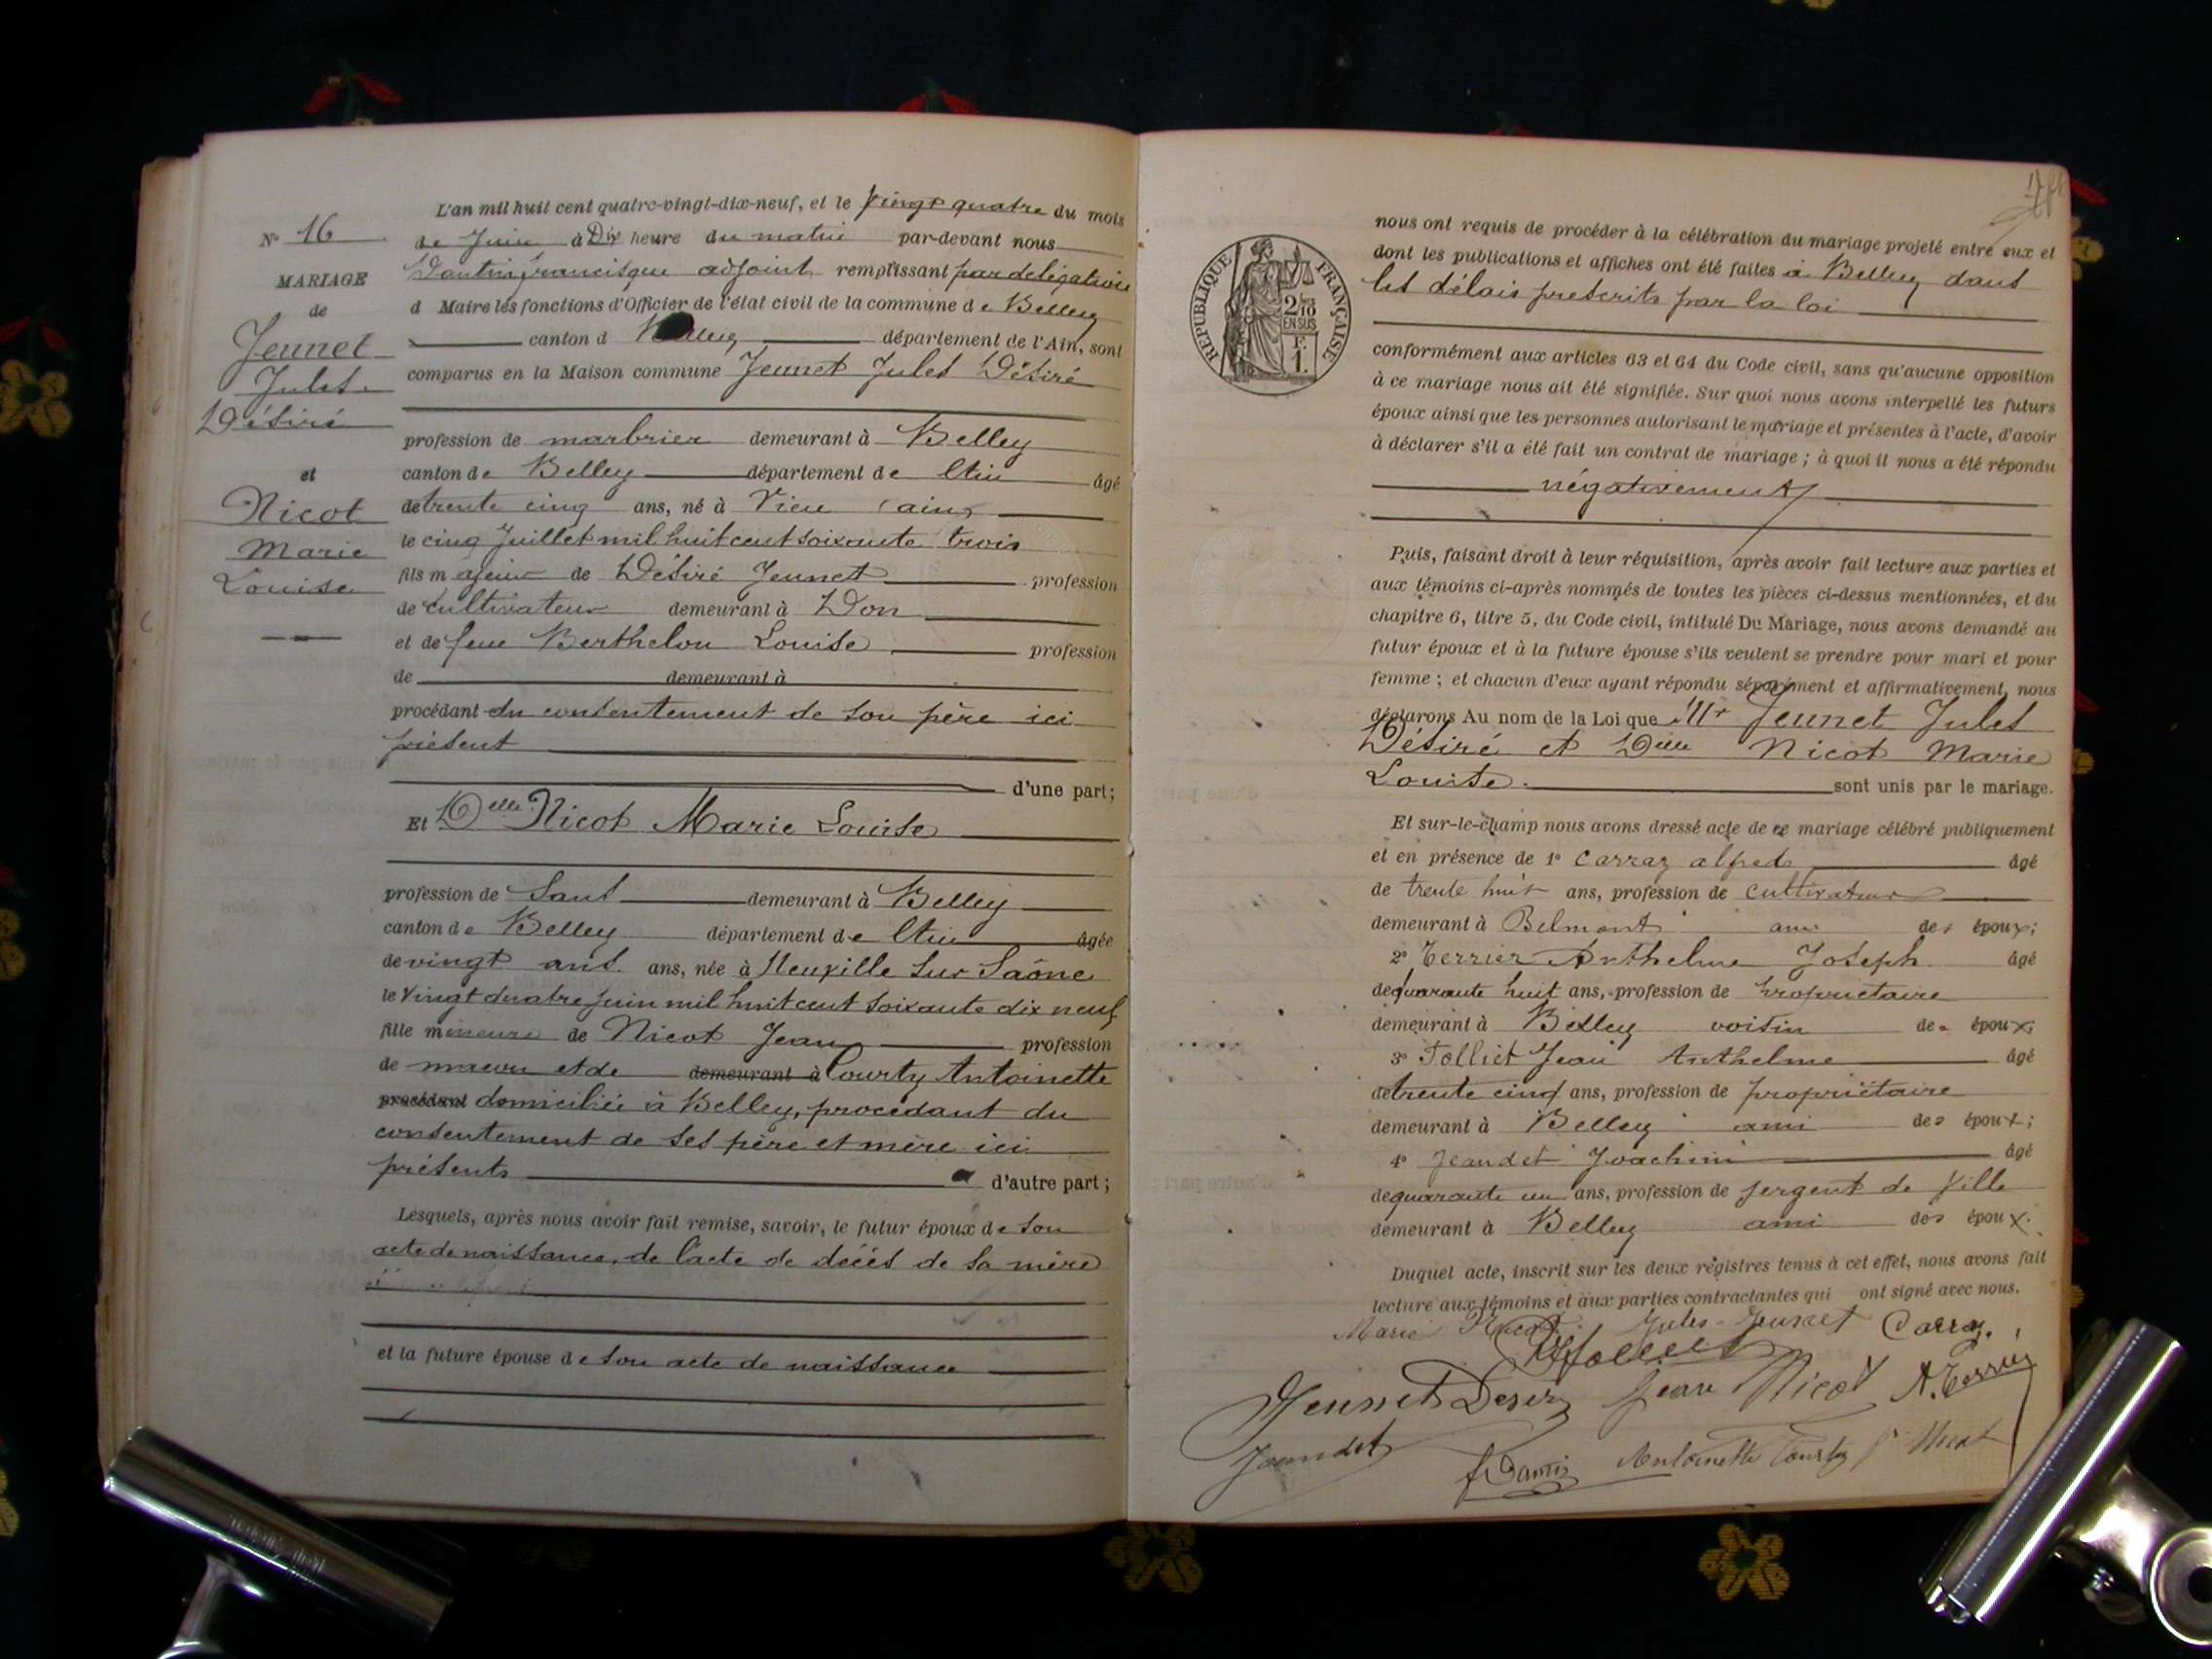 N° 16
MARIAGE
de
Jeunet
Jules
Désiré
et
Nicot
Marie
Louise
L'an mil huit cent quatre-vingt-dix-neuf, et le vingt quatre du mois
de Juin à Dix heure du matin par-devant nous
francisque adjoint remplissant par délégation
d Maire les fonctions d'Officier de l'état civil de la commune de Belley
canton d Belley département de l'Ain, sont
comparus en la Maison commune Jeunet Jules Désiré
profession de marbrier demeurant à Belley
canton de Belley département de l'Ain âgé
de trente cinq ans, né à Vieu (ain)
le cinq Juillet mil huit cent soixante trois
fils majeur de Désiré Jeunet profession
de cultivateur demeurant à Don
et de feue Berthelon Louise profession
de demeurant à
procédant du consentement de son père ici
présent
d'une part;
Et Delle Nicot Marie Louise
profession de Sans demeurant à Belley
canton de Belley département de l'Ain âgée
de vingt ans ans, née à Neuville sur Saône
le vingt quatre juin mil huit cent soixante dix neuf
fille mineure de Nicot Jean profession
de macon et de demeurant à Courty Antoinette
procédant domiciliés à Belley, procédant du
consentement de ses père et mère ici
présents d'autre part;
Lesquels, après nous avoir fait remise, savoir, le futur époux de son
acte de naissance, de l'acte de décès de sa mère
et la future épouse de son acte de naissance
RÉPUBLIQUE FRANÇAISE
2/10
EN SUS
F.
1.
nous ont requis de procéder à la célébration du mariage projeté entre eux et
dont les publications et affiches ont été faites à Belley dans
les délais prescrits par la loi
conformément aux articles 63 et 64 du Code civil, sans qu'aucune opposition
à ce mariage nous ait été signifiée. Sur quoi nous avons interpellé les futurs
époux ainsi que les personnes autorisant le mariage et présentes à l'acte, d'avoir
à déclarer s'il a été fait un contrat de mariage; à quoi il nous a été répondu
négativement
Puis, faisant droit à leur réquisition, après avoir fait lecture aux parties et
aux témoins ci-après nommés de toutes les pièces ci-dessus mentionnées, et du
chapitre 6, titre 5, du Code civil, intitulé Du Mariage, nous avons demandé au
futur époux et à la future épouse s'ils veulent se prendre pour mari et pour
femme; et chacun d'eux ayant répondu séparément et affirmativement, nous
déclarons Au nom de la Loi que Mr Jeunet Jules
Désiré et Delle Nicot Marie
Louise. sont unis par le mariage.
Et sur-le-champ nous avons dressé acte de ce mariage célébré publiquement
et en présence de 1° Carraz alfred âgé
de trente huit ans, profession de cultivateur
demeurant à Belmont ami des époux;
2° Terrier Anthelme Joseph âgé
de quarante huit ans, profession de propriétaire
demeurant à Belley voisin des époux;
3° Folliet Jean Anthelme âgé
de trente cinq ans, profession de propriétaire
demeurant à Belley ami des époux;
4° Jeandet Joachim âgé
de quarante un ans, profession de sergent de Ville
demeurant à Belley ami des époux.
Duquel acte, inscrit sur les deux registres tenus à cet effet, nous avons fait
lecture aux témoins et aux parties contractantes qui ont signé avec nous.
Marie Nicot Jules Jeunet Carraz
Jeunet Jean Nicot A. Terrier
Jeandet Antoinette Courty Nicot